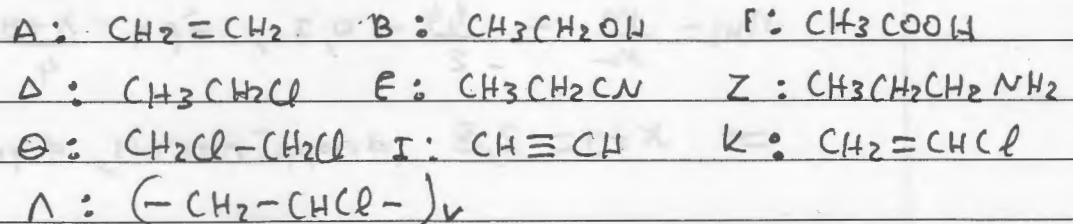 Α: CH2=CH2 Β: CH3CH2OH Γ: CH3COOH
Δ: CH3CH2Cl Ε: CH3CH2CN Ζ: CH3CH2CH2NH2
Θ: CH2Cl-CH2Cl Ι: CH≡CH Κ: CH2=CHCl
Λ: (-CH2-CHCl-)ν